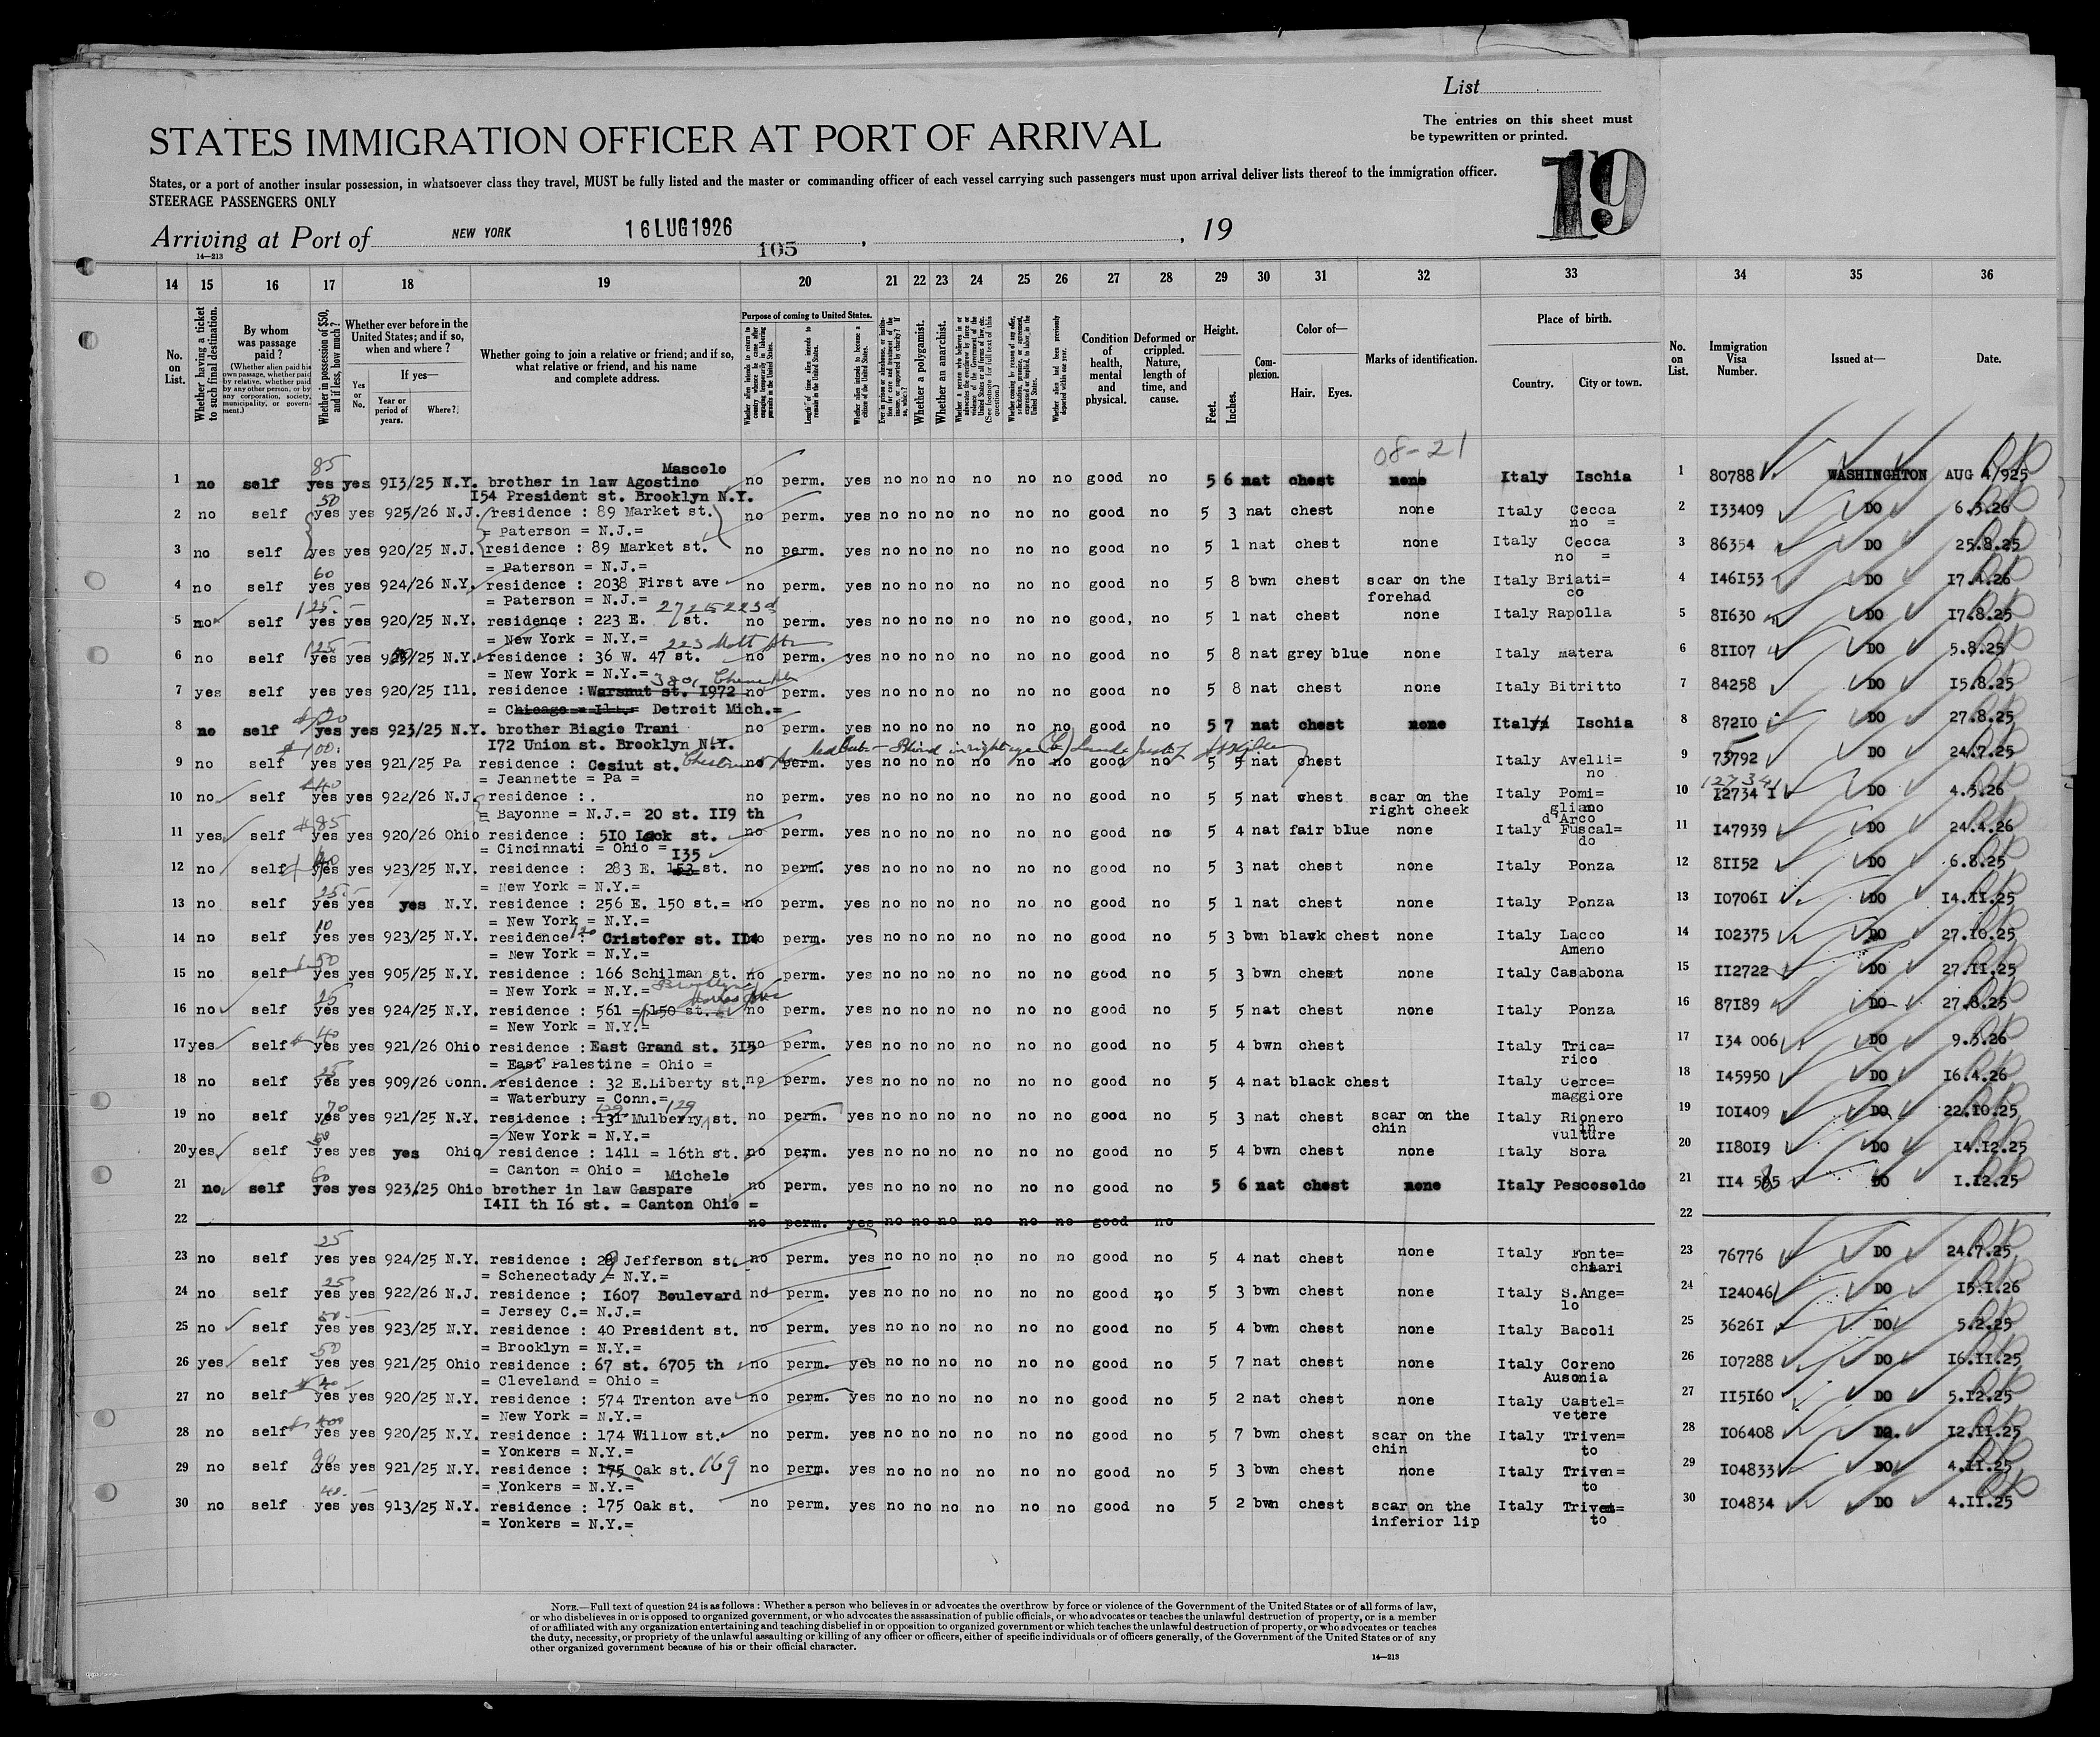 List
The entries on this sheet must
be typewritten or printed.
STATES IMMIGRATION OFFICER AT PORT OF ARRIVAL
19
States, or a port of another insular possession, in whatsoever class they travel, MUST be fully listed and the master or commanding officer of each vessel carrying such passengers must upon arrival deliver lists thereof to the immigration officer.
STEERAGE PASSENGERS ONLY
Arriving at Port of NEW YORK 16 LUG 1926, , 19
14—213
105
14 15 16 17 18 19 20 21 22 23 24 25 26 27 28 29 30 31 32 33 34 35 36
No. on List.
Whether having a ticket to such final destination.
By whom was passage paid?
(Whether alien paid his own passage, whether paid by relative, whether paid by any other person, or by any corporation, society, municipality, or government.)
Whether in possession of $50, and if less, how much?
Whether ever before in the United States; and if so, when and where?
If yes—
Yes or No.
Year or period of years.
Where?
Whether going to join a relative or friend; and if so, what relative or friend, and his name and complete address.
Purpose of coming to United States.
Length of time alien intends to remain in the United States.
Whether alien intends to become a citizen of the United States.
Whether a polygamist.
Whether an anarchist.
Condition of health, mental and physical.
Deformed or crippled. Nature, length of time, and cause.
Height.
Feet. Inches.
Complexion.
Color of—
Hair. Eyes.
Marks of identification.
Place of birth.
Country. City or town.
No. on List.
Immigration Visa Number.
Issued at—
Date.
08-21
85
Mascolo
1 no self yes yes 913/25 N.Y. brother in law Agostino no perm. yes no no no no no no good no 5 6 nat chest none Italy Ischia 1 80788 WASHINGHTON AUG 4/925
I54 President st. Brooklyn N.Y.
50
2 no self yes yes 925/26 N.J. residence : 89 Market st. no perm. yes no no no no no no good no 5 3 nat chest none Italy Cecca 2 I33409 DO 6.3.26
= Paterson = N.J.= no =
3 no self yes yes 920/25 N.J. residence : 89 Market st. no perm. yes no no no no no no good no 5 1 nat chest none Italy Cecca 3 86354 DO 25.8.25
= Paterson = N.J.= no =
60
4 no self yes yes 924/26 N.Y. residence : 2038 First ave no perm. yes no no no no no no good no 5 8 bwn chest scar on the Italy Briati= 4 I46I53 DO I7.4.26
= Paterson = N.J.= forehad co
125.
5 no self yes yes 920/25 N.Y. residence : 223 E. st. no perm. yes no no no no no no good, no 5 1 nat chest none Italy Rapolla 5 8I630 DO I7.8.25
= New York = N.Y.= 223 Mott st
125
6 no self yes yes /25 N.Y. residence : 36 W. 47 st. no perm. yes no no no no no no good no 5 8 nat grey blue none Italy matera 6 8II07 DO 5.8.25
= New York = N.Y.=
7 yes self yes yes 920/25 Ill. residence : Warsnut st. I972 no perm. yes no no no no no no good no 5 8 nat chest none Italy Bitritto 7 84258 DO I5.8.25
= Chicago = Ill.= Detroit Mich.=
8 no self yes yes 923/25 N.Y. brother Biagio Trani no perm. yes no no no no no no good no 5 7 nat chest none Italy Ischia 8 872I0 DO 27.8.25
I72 Union st. Brooklyn N.Y.
$100.
9 no self yes yes 921/25 Pa residence : Cesiut st. no perm. yes no no no no no no good no 5 5 nat chest Italy Avelli= 9 73792 DO 24.7.25
= Jeannette = Pa = no
$40
127341
10 no self yes yes 922/26 N.J. residence : . no perm. yes no no no no no no good no 5 5 nat chest scar on the Italy Pomi= 10 I2734 I DO 4.3.26
= Bayonne = N.J.= 20 st. II9 th right cheek gliano d'Arco
$85
11 yes self yes yes 920/26 Ohio residence : 5I0 Lock st. no perm. yes no no no no no no good no 5 4 nat fair blue none Italy Fuscal= 11 I47939 DO 24.4.26
= Cincinnati = Ohio = do
I35
12 no self yes yes 923/25 N.Y. residence : 283 E. 153 st. no perm. yes no no no no no no good no 5 3 nat chest none Italy Ponza 12 8II52 DO 6.8.25
= New York = N.Y.=
25.
13 no self yes yes yes N.Y. residence : 256 E. 150 st.= no perm. yes no no no no no no good no 5 1 nat chest none Italy Ponza 13 I0706I DO I4.II.25
= New York = N.Y.=
10
14 no self yes yes 923/25 N.Y. residence : Cristofer st. II4 no perm. yes no no no no no no good no 5 3 bwn black chest none Italy Lacco 14 I02375 DO 27.I0.25
= New York = N.Y.= Ameno
50
15 no self yes yes 905/25 N.Y. residence : 166 Schilman st. no perm. yes no no no no no no good no 5 3 bwn chest none Italy Casabona 15 II2722 DO 27.II.25
= New York = N.Y.= Brooklyn
25
16 no self yes yes 924/25 N.Y. residence : 561 = 150 st. no perm. yes no no no no no no good no 5 5 nat chest none Italy Ponza 16 87I89 DO 27.8.25
= New York = N.Y.=
40
17 yes self yes yes 921/26 Ohio residence : East Grand st. 3I5 no perm. yes no no no no no no good no 5 4 bwn chest Italy Trica= 17 I34 006 DO 9.3.26
= East Palestine = Ohio = rico
25
18 no self yes yes 909/26 Conn. residence : 32 E.Liberty st. no perm. yes no no no no no no good no 5 4 nat black chest Italy Cerce= 18 I45950 DO I6.4.26
= Waterbury = Conn.= maggiore
70 129 129
19 no self yes yes 921/25 N.Y. residence : 131 Mulberry st. no perm. yes no no no no no no good no 5 3 nat chest scar on the Italy Rionero 19 I0I409 DO 22.I0.25
= New York = N.Y.= chin in Vulture
20 yes self yes yes yes Ohio residence : 1411 = 16th st. no perm. yes no no no no no no good no 5 4 bwn chest none Italy Sora 20 II80I9 DO I4.I2.25
= Canton = Ohio = Michele
60
21 no self yes yes 923.25 Ohio brother in law Gaspare no perm. yes no no no no no no good no 5 6 nat chest none Italy Pescosoldo 21 II4 5 5 DO I.I2.25
I4II th I6 st. = Canton Ohio =
22 no perm. yes no no no no no no good no 22
25
23 no self yes yes 924/25 N.Y. residence : 29 Jefferson st. no perm. yes no no no no no no good no 5 4 nat chest none Italy Fonte= 23 76776 DO 24.7.25
= Schenectady = N.Y.= chiari
25
24 no self yes yes 922/26 N.J. residence : I607 Boulevard no perm. yes no no no no no no good no 5 3 bwn chest none Italy S.Ange= 24 I24046 DO I5.I.26
= Jersey C.= N.J.= lo
50
25 no self yes yes 923/25 N.Y. residence : 40 President st. no perm. yes no no no no no no good no 5 4 bwn chest none Italy Bacoli 25 3626I DO 5.2.25
= Brooklyn = N.Y.=
50
26 yes self yes yes 921/25 Ohio residence : 67 st. 6705 th no perm. yes no no no no no no good no 5 7 nat chest none Italy Coreno 26 I07288 DO I6.II.25
= Cleveland = Ohio = Ausonia
40
27 no self yes yes 920/25 N.Y. residence : 574 Trenton ave no perm. yes no no no no no no good no 5 2 nat chest none Italy Castel= 27 II5I60 DO 5.I2.25
= New York = N.Y.= vetere
28 no self yes yes 920/25 N.Y. residence : 174 Willow st. no perm. yes no no no no no no good no 5 7 bwn chest scar on the Italy Triven= 28 I06408 DO. I2.II.25
= Yonkers = N.Y.= chin to
90
29 no self yes yes 921/25 N.Y. residence : 175 Oak st. 169 no perm. yes no no no no no no good no 5 3 bwn chest none Italy Triven= 29 I04833 DO 4.II.25
= Yonkers = N.Y.= to
40.
30 no self yes yes 913/25 N.Y. residence : 175 Oak st. no perm. yes no no no no no no good no 5 2 bwn chest scar on the Italy Triven= 30 I04834 DO 4.II.25
= Yonkers = N.Y.= inferior lip to
NOTE.—Full text of question 24 is as follows: Whether a person who believes in or advocates the overthrow by force or violence of the Government of the United States or of all forms of law,
or who disbelieves in or is opposed to organized government, or who advocates the assassination of public officials, or who advocates or teaches the unlawful destruction of property, or is a member
of or affiliated with any organization entertaining and teaching disbelief in or opposition to organized government or which teaches the unlawful destruction of property, or who advocates or teaches
the duty, necessity, or propriety of the unlawful assaulting or killing of any officer or officers, either of specific individuals or of officers generally, of the Government of the United States or of any
other organized government because of his or their official character.
14—213